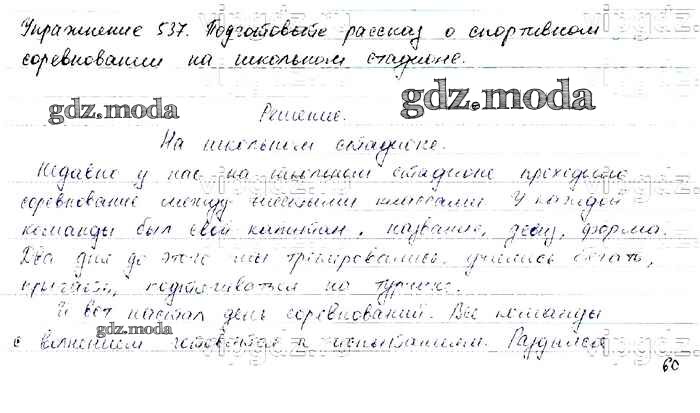 Упражнение 537. Подготовьте рассказ о спортивном
соревновании на школьном стадионе.
gdz.moda
gdz.moda
Решение.
На школьном стадионе.
Недавно у нас на школьном стадионе проходило
соревнование между шестыми классами. У каждой
команды был свой капитан, название, девиз, форма.
Два дня до этого мы тренировались, учились бегать,
прыгать, подтягиваться на турнике.
И вот настал день соревнований. Все команды
gdz.moda
с волнением готовятся к испытаниям. Раздился
60